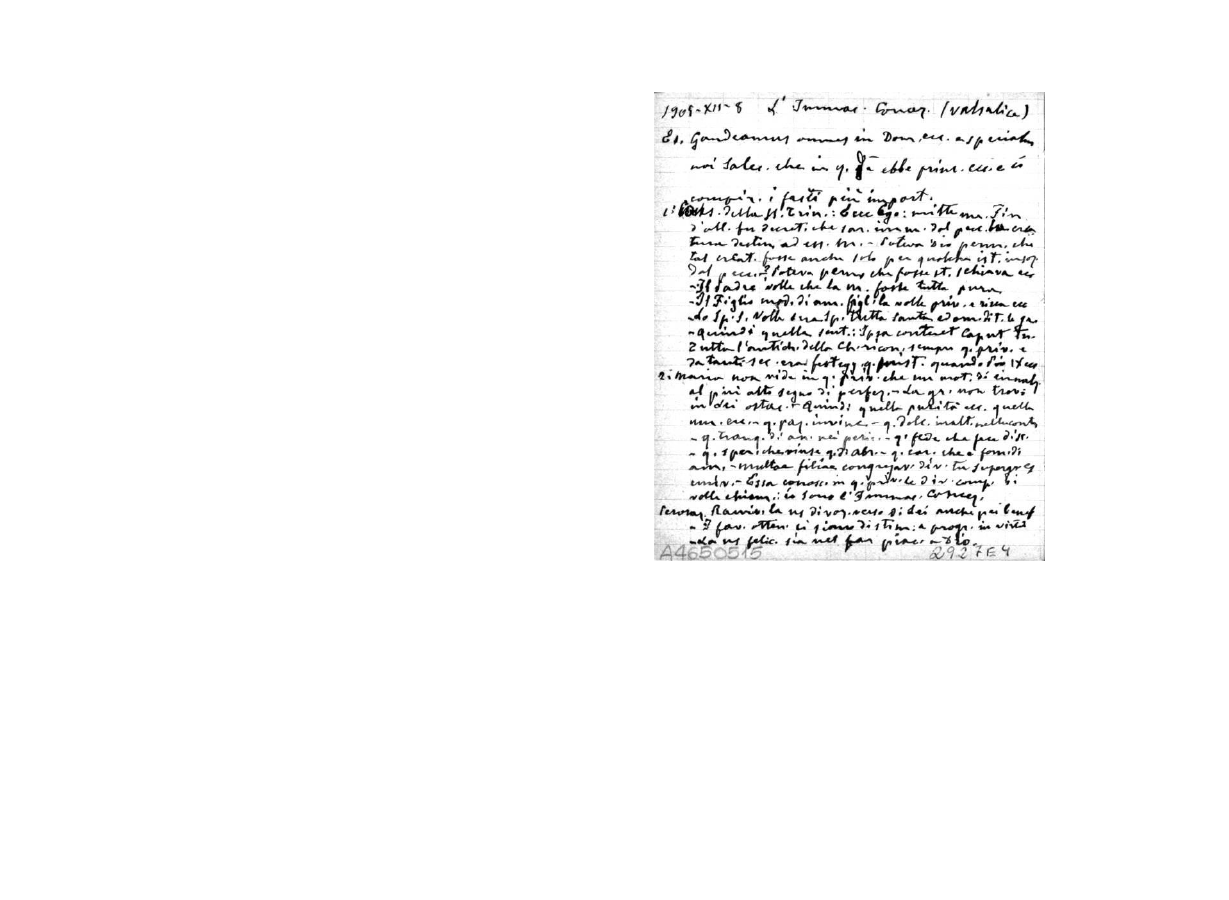 1905-XII-8 L' Immac. Concez. (Valsalice)
Es. Gaudeamus omnes in Dom. ecc. a special.
noi Sales. che in q. ebbe princ. ecc. e
i fasti più import.
della SS. Trin.: Ecce Ego: mitte me. Fin
d'all. fu decret. che sar. imm. dal pecc. la crea
tura destin. ad ess. M. - Poteva Dio perm. che
tal creat. fosse anche solo per qualche ist. insoz.
dal pecc.? Poteva perm. che fosse st. schiava ecc
- Il Padre volle che la M. fosse tutta pura
- Il Figlio mod. di am. figl. la volle priv. e ricca ecc
- Lo Sp. S. volle sua Sp. tutta santa
- Quindi quella sent.: Ipsa conteret caput tu.
Tutta l'antich. della Ch. ricon. sempre q. priv. e
da tanti sec. era festegg. quando Pio IX ecc
2: Maria non vide in q. priv. che un mot. di innalz.
al più alto segno di perfez. - La gr. non trovò
in Lei ostac. - Quindi quella purità ecc. quella
um. ecc. - q. paz. invinc. - q. dolc.
- q. tranq. di an. nei peric. - q. fede che fece dist.
- q. sper. che vinse q. di Abr. - q. car. che è forn. di
am. - multae filiae congregav. div. tu supergres
univ. - Essa conosc. in q. priv. le div. comp. Si
volle chiam.: io sono l'Immac. Concez.
Peroraz. Ravviv. la ns divoz. verso di Lei anche pei benef
- I fav. otten. ci siano di stim. a progr. in virtù
- La ns felic. sia nel far piac. a Dio.
A4650515 2927E4